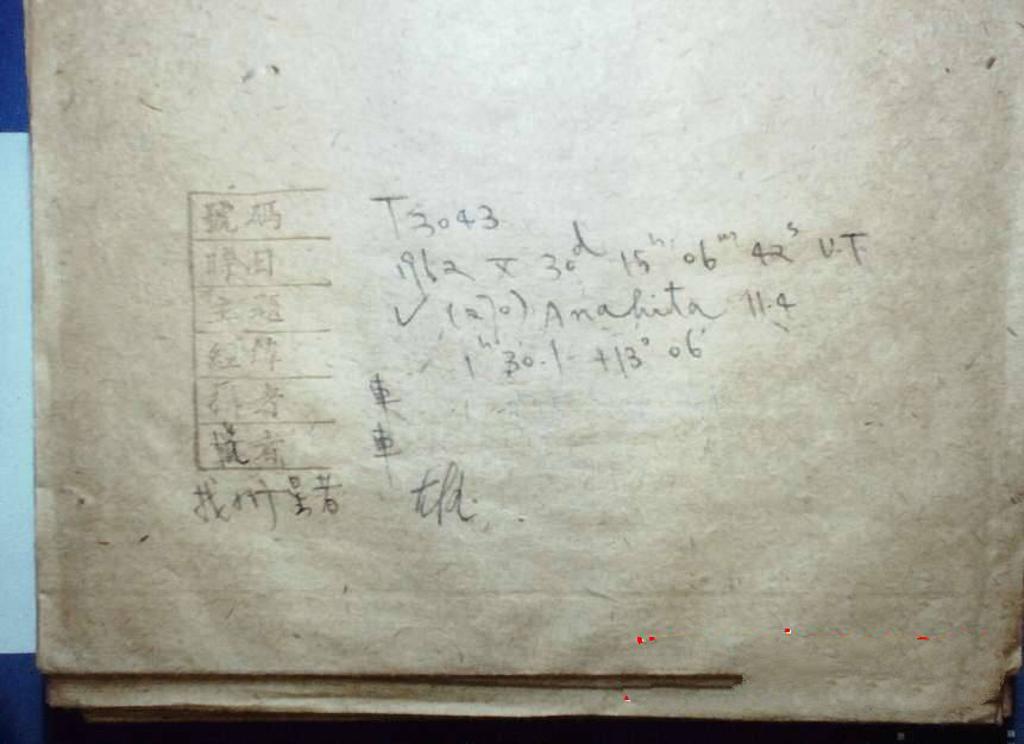 號碼 T3043
時日 1962 X 30ᵈ 15ʰ 06ᵐ 42ˢ U.T
主題 ✓ (270) Anahita 11.4
經緯 1ʰ 30.1 +13° 06'
車
者 車
找 者